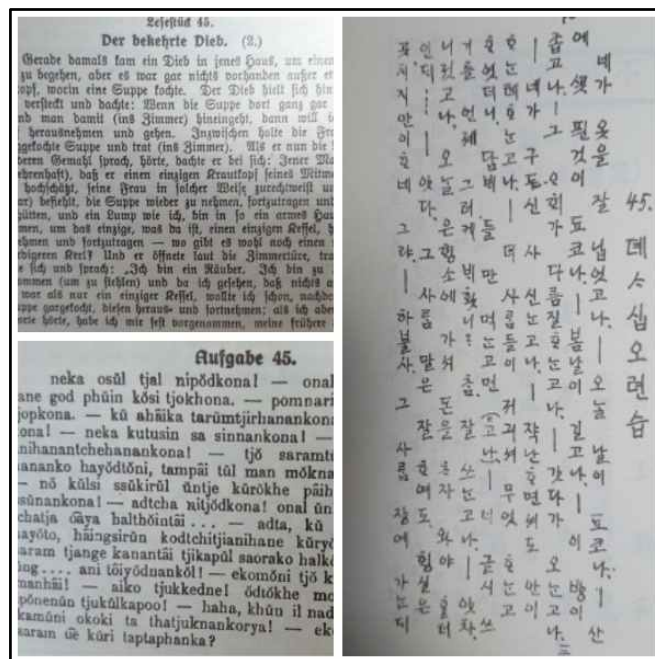 Lesestück 45.
Der bekehrte Dieb. (2.)
Gerade damals kam ein Dieb in jenes Haus, um einen
zu begehen, aber es war gar nichts vorhanden außer
worin eine Suppe kochte. Der Dieb hielt sich
versteckt und dachte: Wenn die Suppe dort ganz gar
man damit (ins Zimmer) hineingeht, dann will
herausnehmen und gehen. Inzwischen holte die
gekochte Suppe und trat (ins Zimmer). Als er nun die
Gemahl sprach, hörte, dachte er bei sich: Jener
daß er einen einzigen Krautkopf seines
hochschätzt, seine Frau in solcher Weise zurechtweist
befiehlt, die Suppe wieder zu nehmen, fortzutragen und
und ein Lump wie ich, bin in so ein armes
um das einzige, was da ist, einen einzigen Kessel,
und fortzutragen — wo gibt es wohl noch einen
Kerl? Und er öffnete laut die Zimmertüre,
sich und sprach: „Ich bin ein Räuber. Ich bin zu
(um zu stehlen) und da ich gesehen, daß nichts
war als nur ein einziger Kessel, wollte ich schon,
gargekocht, diesen heraus- und fortnehmen; als ich aber
hörte, habe ich mir fest vorgenommen, meine frühere
Aufgabe 45.
neka osŭl tjal nipŏdkona! — onal
god phüin kŏsi tjokhona. — pomnari
kŭ ahăika tarŭmtjirhanankona
neka kutusin sa sinnankona! —
nihanantchehanankona! — tjŏ
hayŏdtŏni, tampăi tŭl man mŏkna
— nŏ kŭlsi ssŭkirŭl ŭntje kŭrŏkhe
adtcha nitjŏdkona! onal
chatja oăya halthŏintăi . . . — adta, kŭ
hayŏto, hăingsirŭn kodtchitjianihane
saram tjange kanantăi tjikapŭl saorako
. . . . ani tŏiyŏdnankŏl! — ekomŏni tjŏ
— aiko tjukkedne! ŏdtŏkhe
tjukŭlkapoo! — haha, khŭn il
okoki ta thatjuknankorya! —
saram ŭe kŭri taptaphanka?
45. 데ᄉ십오련습
네가 옷을 잘 닙엇고나. — 오늘 날이 됴코나. — 산
에 ᄭᅩᆺ 필 것이 됴코나. — 봄날이 길고나. — 이 방이
좁고나. — 그 ᄋᆞ회가 다름질ᄒᆞ눈고나. — 갓다가 오눈고나.
— 네가 구두신 사 신눈고나. — 작난ᄒᆞ면셔도 안이
ᄒᆞ눈톄ᄒᆞ눈고나. — 뎌 사름들이 거긔셔 무엇 ᄒᆞ눈고
ᄒᆞ엿더니, 담배들만 먹눈고먼 — 너 글시 쓰
기를 언제 그러케 잘 쓰눈고나. — 앗차
니젓고나. 오늘은 향소에 가셔 돈을 ᄎᆞ자 와야 ᄒᆞᆯ터
인ᄃᆡ... — 앗다, 그 사름 말은 잘은 ᄒᆞ여도 ᄒᆡᆼ실은
안이ᄒᆞ네 그랴. — 그 사름 쟝에 가눈ᄃᆡ